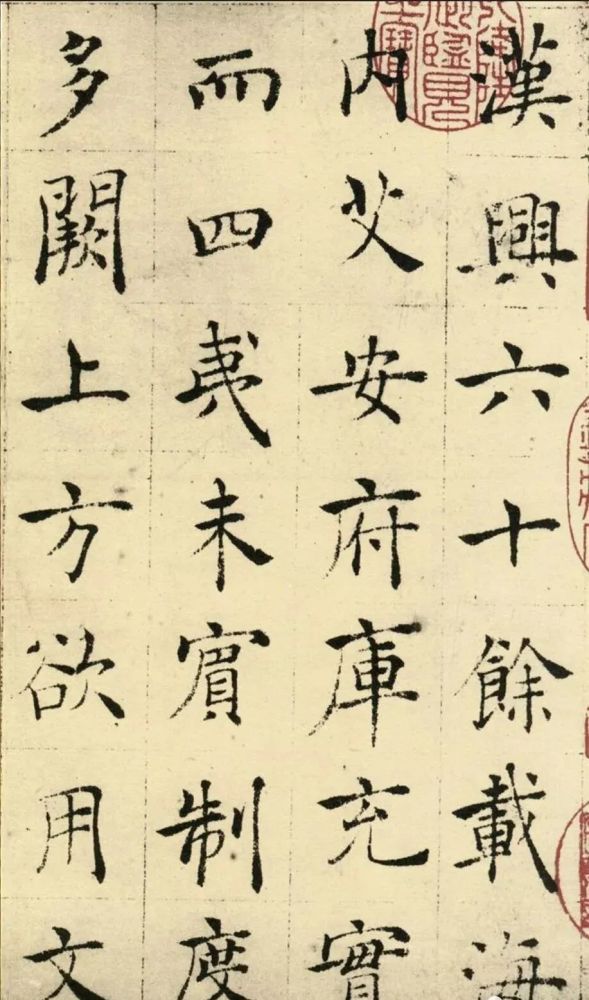 漢興六十餘載海
内艾安府庫充實
而四夷未賓制度
多闕上方欲用文